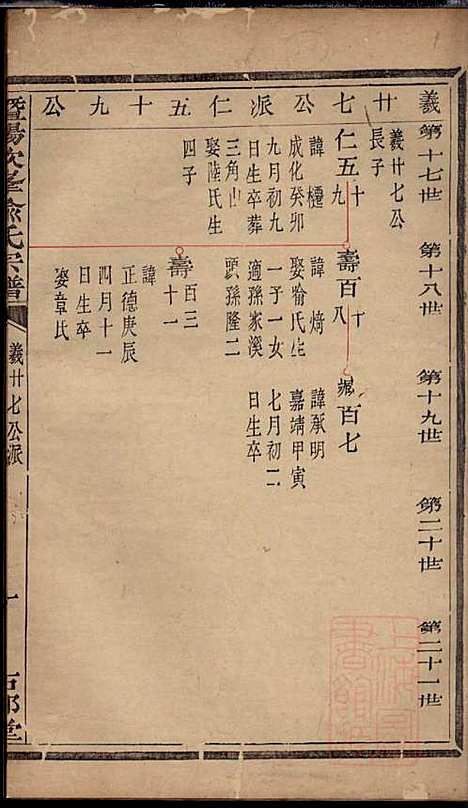 義廿七公派仁五十九公
第十七世
第十八世
第十九世
第二十世
第二十一世
義廿七公
長子
仁五十九
諱櫏
成化癸卯
九月初九
日生卒葬
三角山
娶陸氏生
四子
壽百十八
諱焴
娶喻氏生
一子一女
適孫家溪
頭孫隆二
臧百七
諱承明
嘉靖甲寅
七月初二
日生卒
壽百三
十一
諱
正德庚辰
四月十一
日生卒
娶章氏
暨陽次峯俞氏宗譜
義廿七公派
一